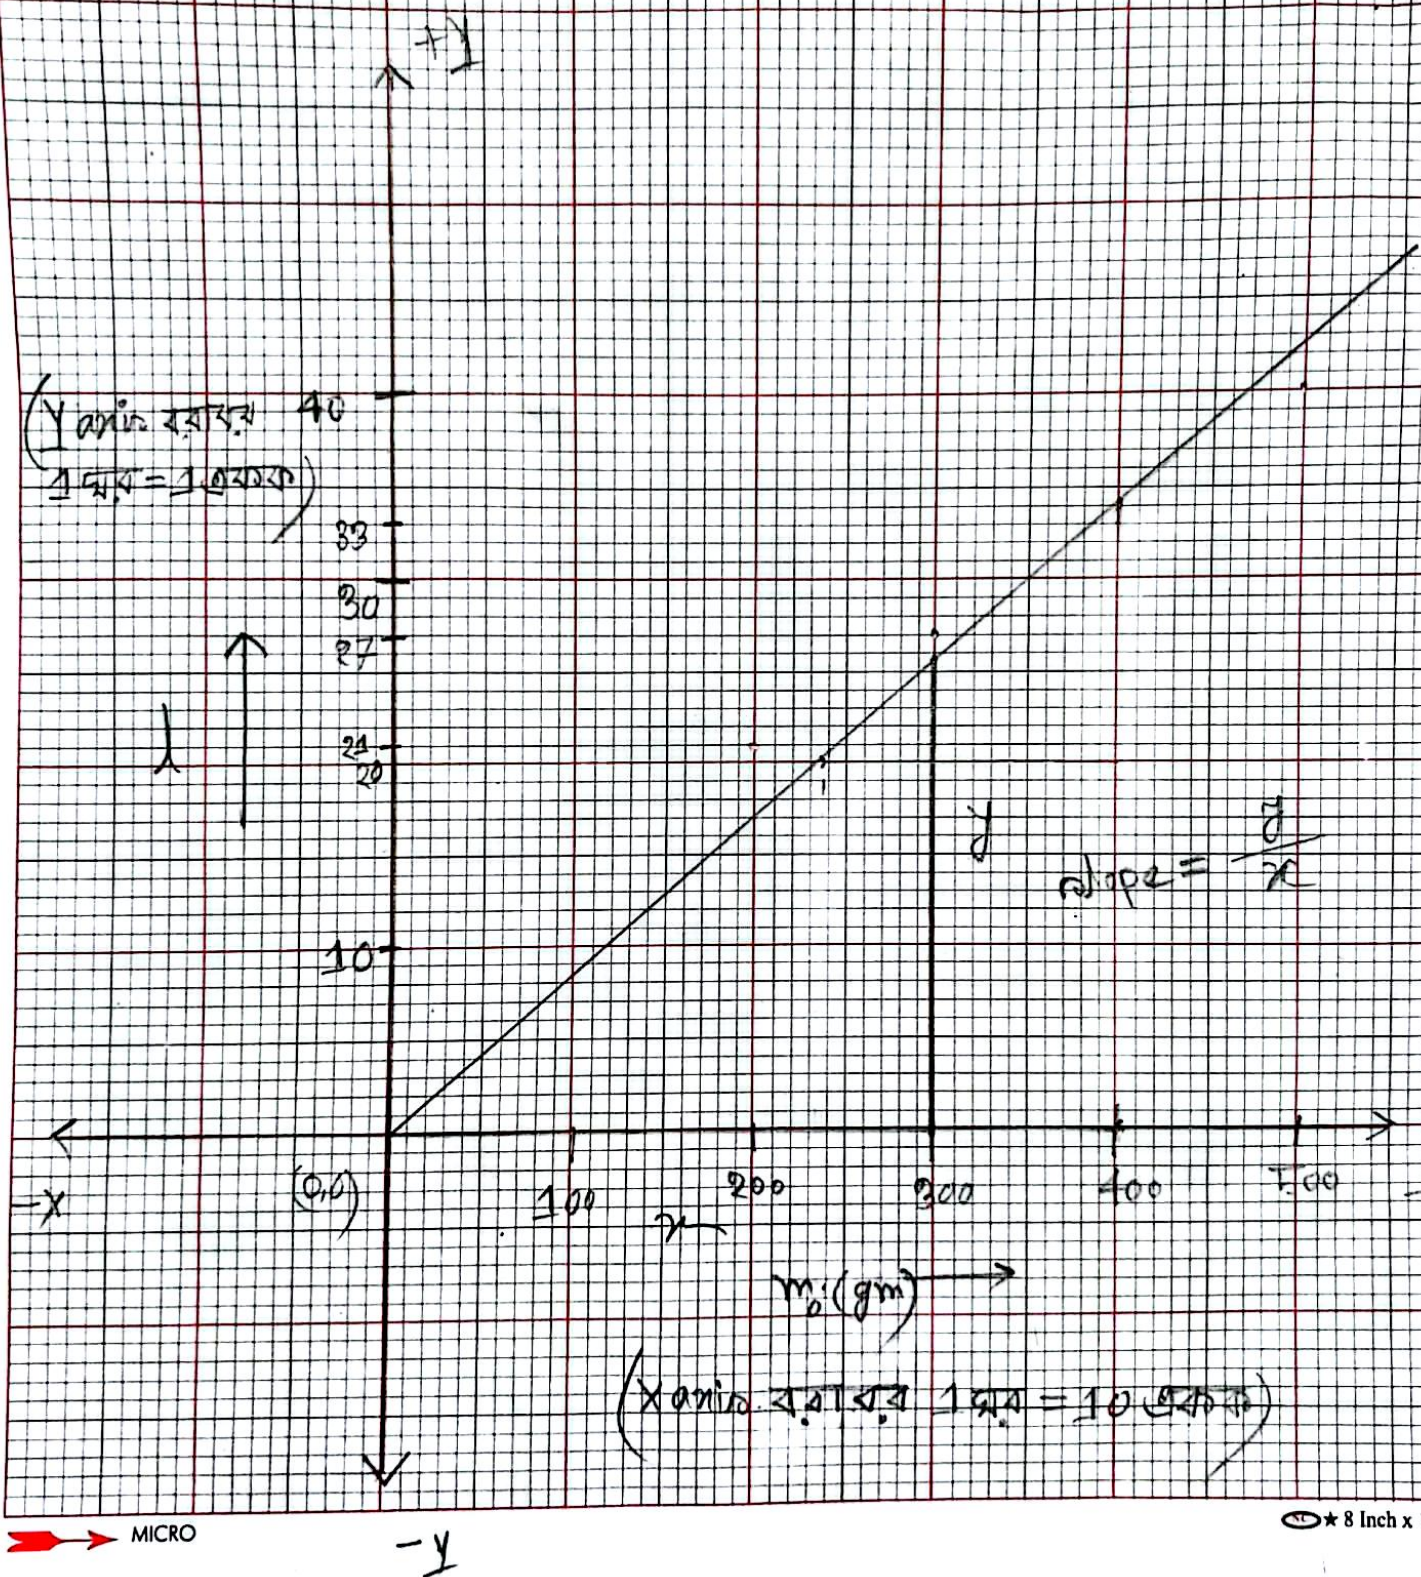 +y
(Y axis বরাবর
1 ঘর = 1 একক)
40
33
30
27
21
20
10
l
y
slope = y/x
-X
(0,0)
100
200
300
400
500
x
m₀ (gm)
(X axis বরাবর 1 ঘর = 10 একক)
-y
MICRO
★ 8 Inch x